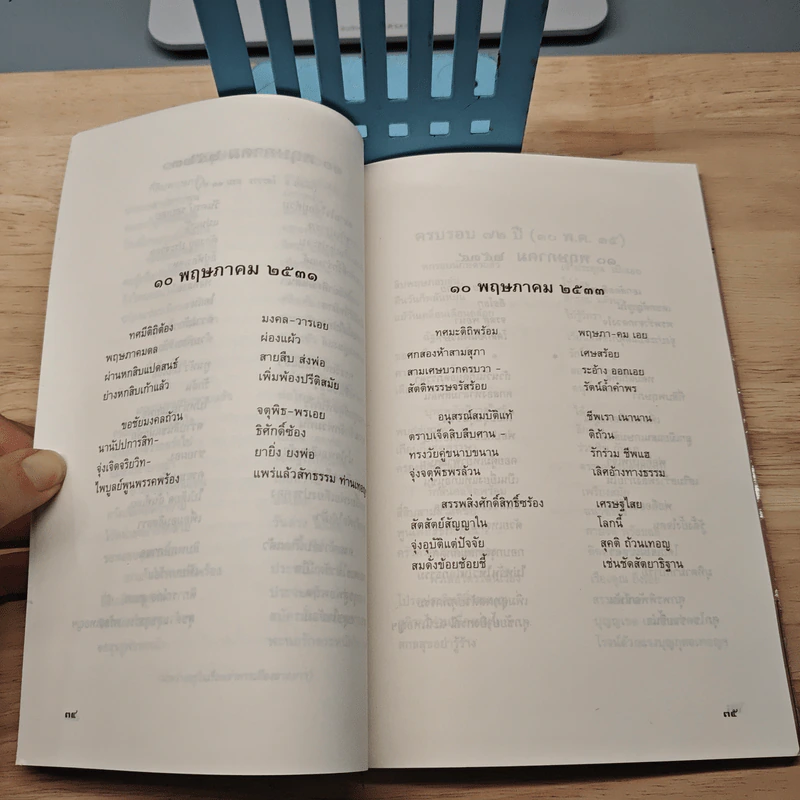 ๑๐ พฤษภาคม ๒๕๓๑
ทศมีดิถีต้อง มงคล-วารเอย
พฤษภาคมดล ผ่องแผ้ว
ผ่านหกสิบแปดสนธ์ สายสืบ ส่งพ่อ
ย่างหกสิบเก้าแล้ว เพิ่มพ้องปรีดิสมัย
ขอชัยมงคลถ้วน จตุพิธ-พรเอย
นานัปปการสิท- ธิศักดิ์ซ้อง
จุ่งเจิดจริยวิท- ยายิ่ง ยงพ่อ
ไพบูลย์พูนพรรคพร้อง แพร่แล้วสัทธรรม ท่านเทอญ
๓๔
๑๐ พฤษภาคม ๒๕๓๓
ทศมะดิถีพร้อม พฤษภา-คม เอย
ศกสองห้าสามสุภา เศษสร้อย
สามเศษบวกครบวา - ระอ้าง ออกเอย
สัตติพรรษจรัสร้อย รัตน์ล้ำคำพร
อนุสรณ์สมบัติแท้ ชีพเรา เนานาน
ตราบเจ็ดสิบสืบศาน - ติถ้วน
ทรงวัยคู่ขนาบขนาน รักร่วม ชีพแฮ
จุ่งจตุพิธพรล้วน เลิศอ้างทางธรรม
สรรพสิ่งศักดิ์สิทธิ์ซร้อง เศรษฐไสย
สัตสัตย์สัญญาใน โลกนี้
จุ่งอุบัติแต่ปัจจัย สุคติ ถ้วนเทอญ
สมดั่งข้อยช้อยชี้ เช่นชัดสัตยาธิฐาน
๓๕